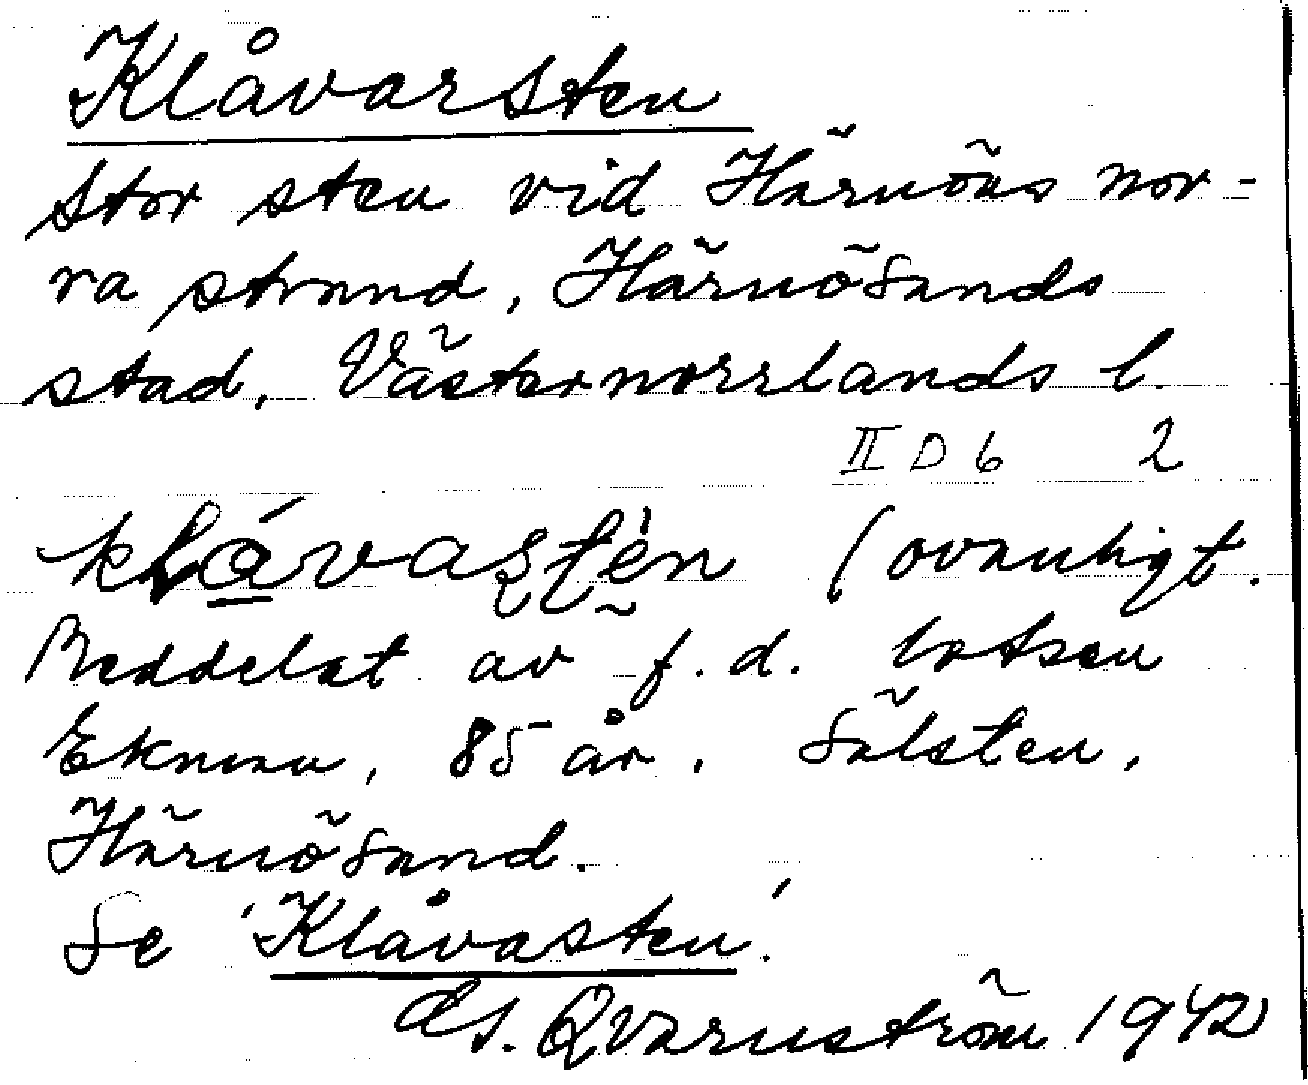 Klåvarsten
Stor sten vid Härnöns nor-
ra strand, Härnösands
stad, Västernorrlands l.
II D 6 2
klávastèn (ovanligt.
Meddelat av f.d. lotsen
Ekman, 85 år. Sälsten,
Härnösand.
Se 'Klåvasten'.
Qvarnström 1942